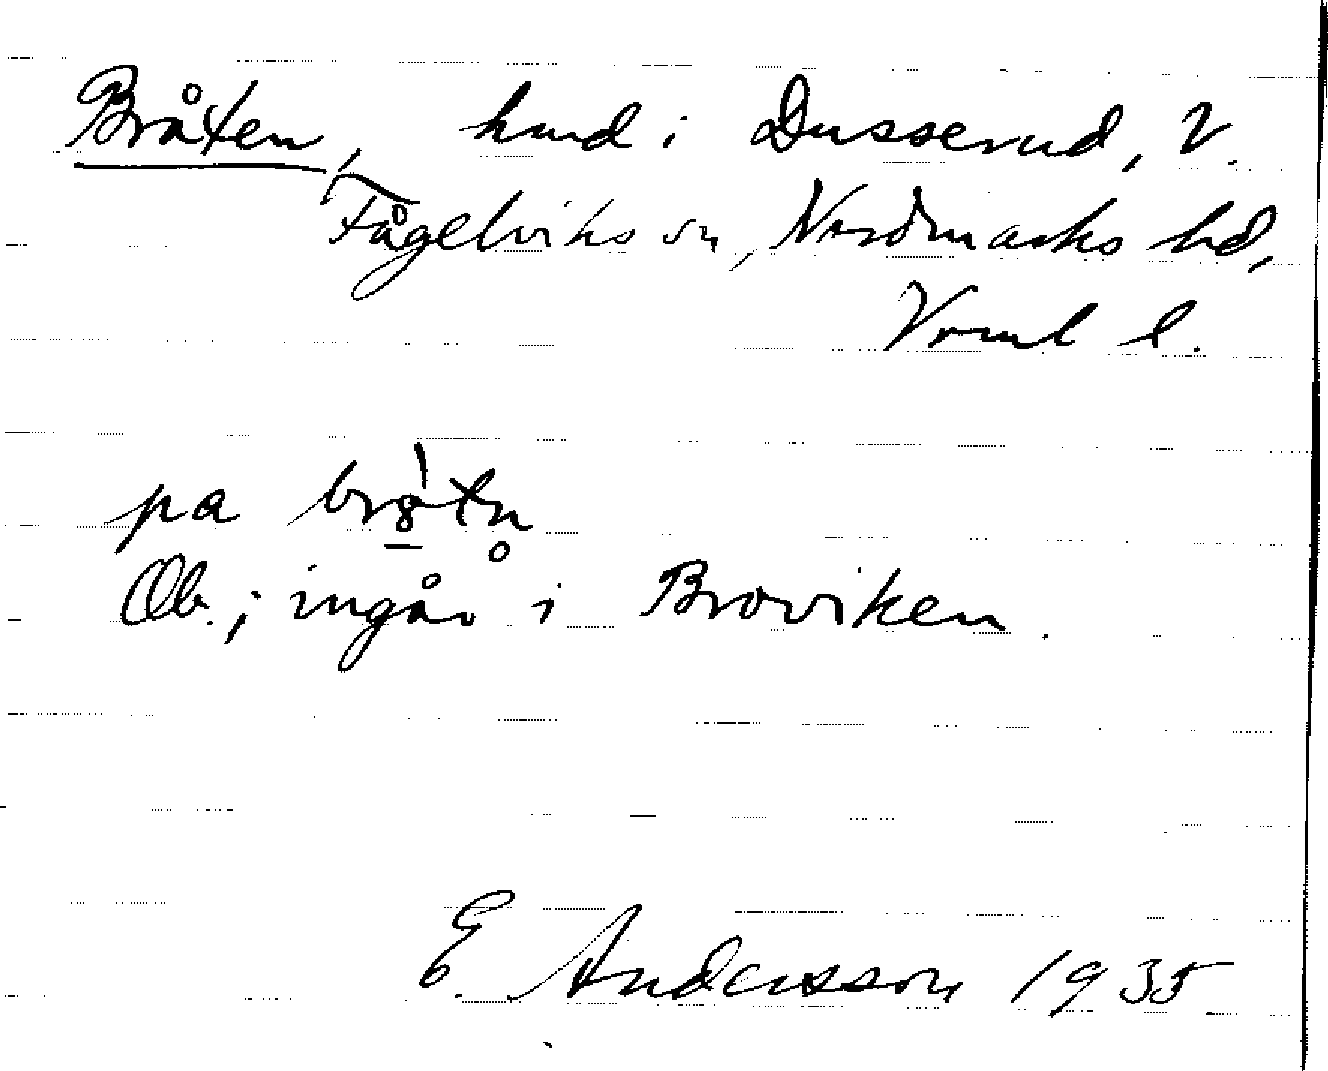 Bråten, hmd i Dusserud, V.
Fågelviks sn, Nordmarks hd,
Vrml l.
pa
Ob.; ingår i Broviken.
E. Andersson 1935